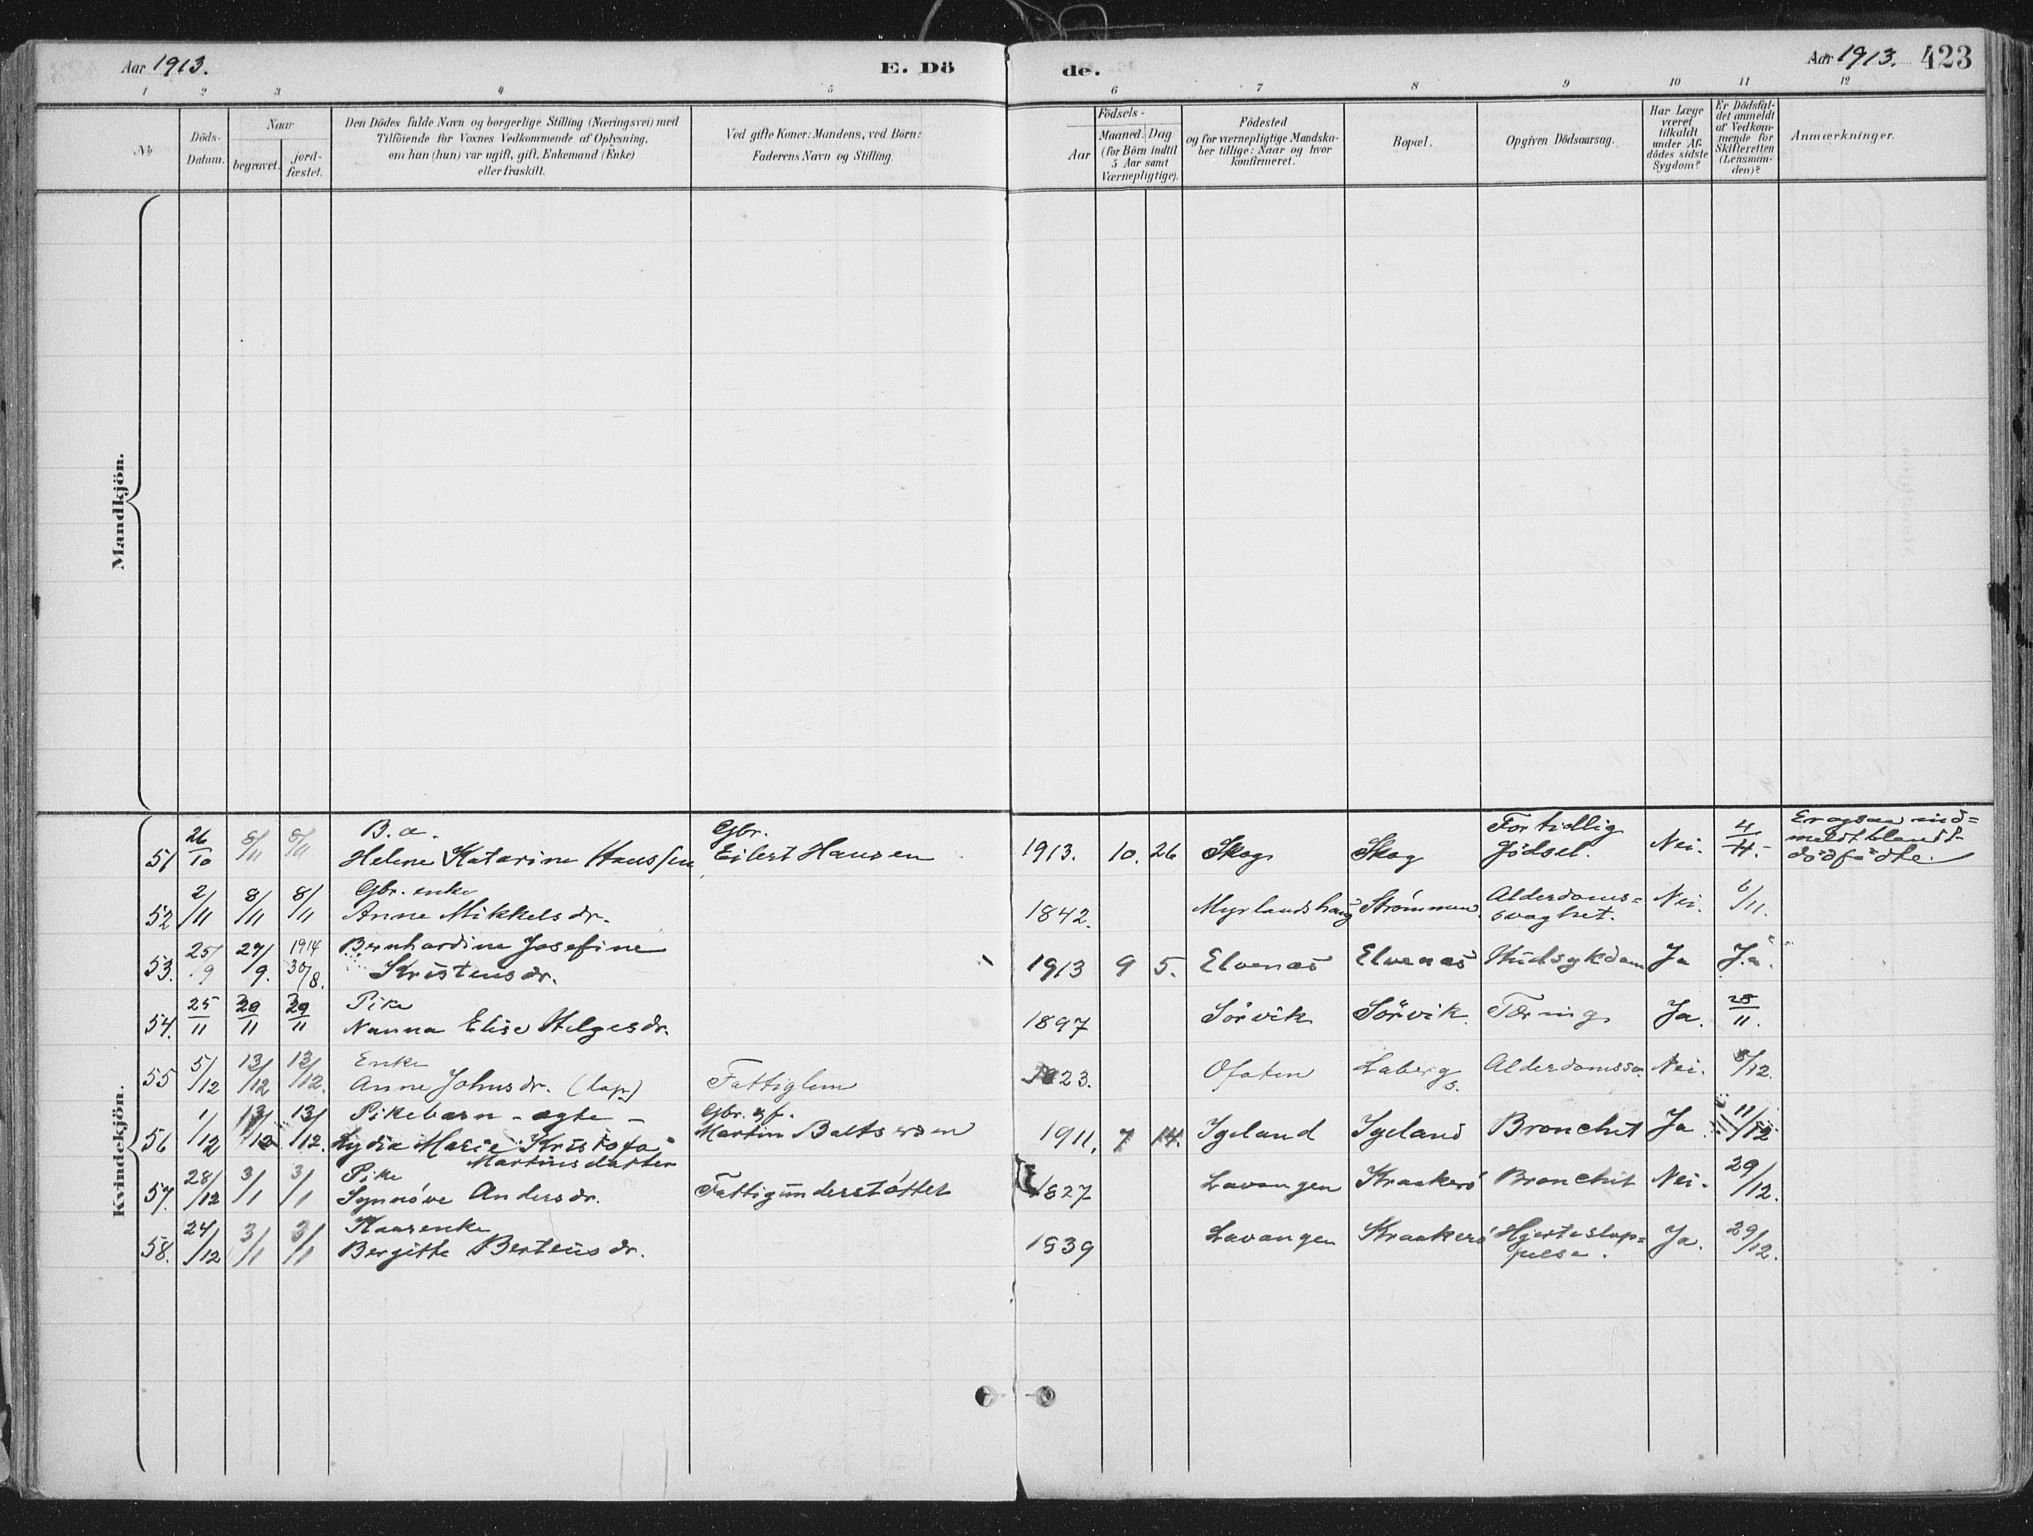 Aar 1913. E. Dö
de. Aar 1913. 423
1 2 3 4 5 6 7 8 9 10 11 12
No
Döds-
Datum.
Naar
begravet. jord-
fæstet.
Den Dödes fulde Navn og borgerlige Stilling (Næringsvei) med
Tilföiende for Voxnes Vedkommende af Oplysning,
om han (hun) var ugift, gift, Enkemand (Enke)
eller fraskilt.
Ved gifte Koner: Mandens, ved Börn:
Faderens Navn og Stilling.
Födsels-
Aar
Maaned. Dag.
(for Börn indtil
5 Aar samt
Værnepligtige).
Födested
og for værnepligtige Mandska-
ber tillige: Naar og hvor
konfirmeret.
Bopæl.
Opgiven Dödsaarsag.
Har Læge
været
tilkaldt
under Af-
dödes sidste
Sygdom?
Er Dödsfal-
det anmeldt
af Vedkom-
mende for
Skifteretten
(Lensman-
den)?
Anmærkninger.
Mandkjön.
Kvindekjön.
51 26/10 8/11 8/11 B. æ. Helene Katarine Hanssen Gbr. Eilert Hansen 1913. 10. 26 Skog Skog For tidlig fødsel. Nei. 4/11. Er ogsaa ind=
meldt blandt
dødfødte.
52 2/11 8/11 8/11 Gbr. enke Anne Mikkelsdr. 1842. Myrlandshaug Strømmen. Alderdoms=
svaghet. Nei. 6/11.
53. 25/9 27/9. 1914 30/8. Bernhardine Josefine
Kristensdr. 1913 9 5. Elvenæs Elvenæs Hudsykdom Ja Ja.
54. 25/11 29/11 29/11 Pike Nanna Elise Helgesdr. 1897 Sørvik Sørvik. Tæring Ja. 28/11.
55 5/12 13/12 13/12. Enke Anne Johnsdr. (lap.) Fattiglem 1823. Ofoten Labergs. Alderdomssv. Nei. 8/12.
56 1/12 13/12 13/12. Pikebarn - ægte - Lydia Marie Kristofa
Martinsdatter Gbr. s.f. Martin Baltsersen 1911. 7 14. Igeland Igeland Bronchit Ja 11/12
57. 28/12 3/1 3/1 Pike Synnøve Andersdr. Fattigunderstøttet 1827 Lavangen Kraakerø Bronchit Nei. 29/12.
58. 24/12 3/1 3/1 Kaarenke Bergitte Berteusdr. 1839 Lavangen Kraakerø Hjertestop=
pelse. Ja. 29/12.